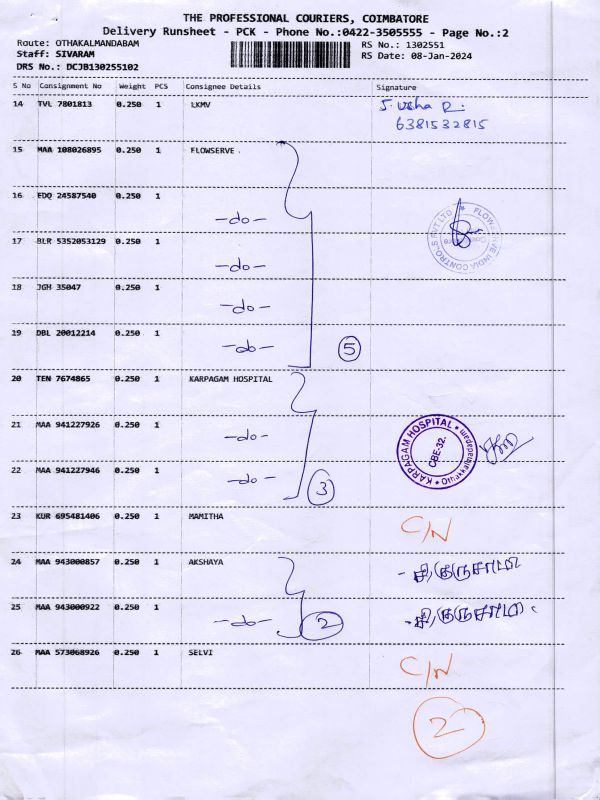 THE PROFESSIONAL COURIERS, COIMBATORE
Delivery Runsheet - PCK - Phone No.:0422-3505555 - Page No.:2
Route: OTHAKALMANDABAM RS No.: 1302551
Staff: SIVARAM RS Date: 08-Jan-2024
DRS No.: DCJB130255102
S No Consignment No Weight PCS Consignee Details Signature
14 TVL 7801813 0.250 1 LKMV J. Usha R.
6381532815
15 MAA 108026895 0.250 1 FLOWSERVE .
16 EDQ 24587540 0.250 1
-do-
17 BLR 5352053129 0.250 1
-do-
18 JGH 35047 0.250 1
-do-
19 DBL 20012214 0.250 1
-do- 5
20 TEN 7674865 0.250 1 KARPAGAM HOSPITAL
21 MAA 941227926 0.250 1
-do-
KARPAGAM HOSPITAL
CBE-32.
22 MAA 941227946 0.250 1
-do- 3
23 KUR 695481406 0.250 1 MAMITHA C/N
24 MAA 943000857 0.250 1 AKSHAYA
25 MAA 943000922 0.250 1
-do- 2
26 MAA 573068926 0.250 1 SELVI C/N
2